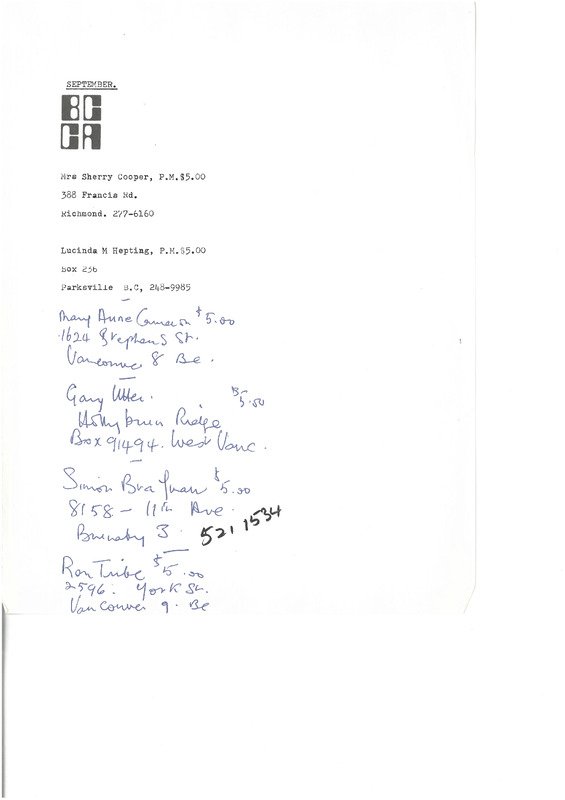 SEPTEMBER.
BC
CA
Mrs Sherry Cooper, P.M.$5.00
388 Francis Rd.
Richmond. 277-6160
Lucinda M Hepting, P.M.$5.00
Box 236
Parksville B.C, 248-9985
Mary Anne Cameron $5.00
1624 Stephens St.
Vancouver 8 Bc.
Gary
5.00
Hollyburn Ridge
Box 91494. West Vanc.
Simon $5.00
8158 - 11th Ave.
Burnaby 3. 521 1534
Ron Tribe $5.00
2596. York St.
Vancouver 9. Bc